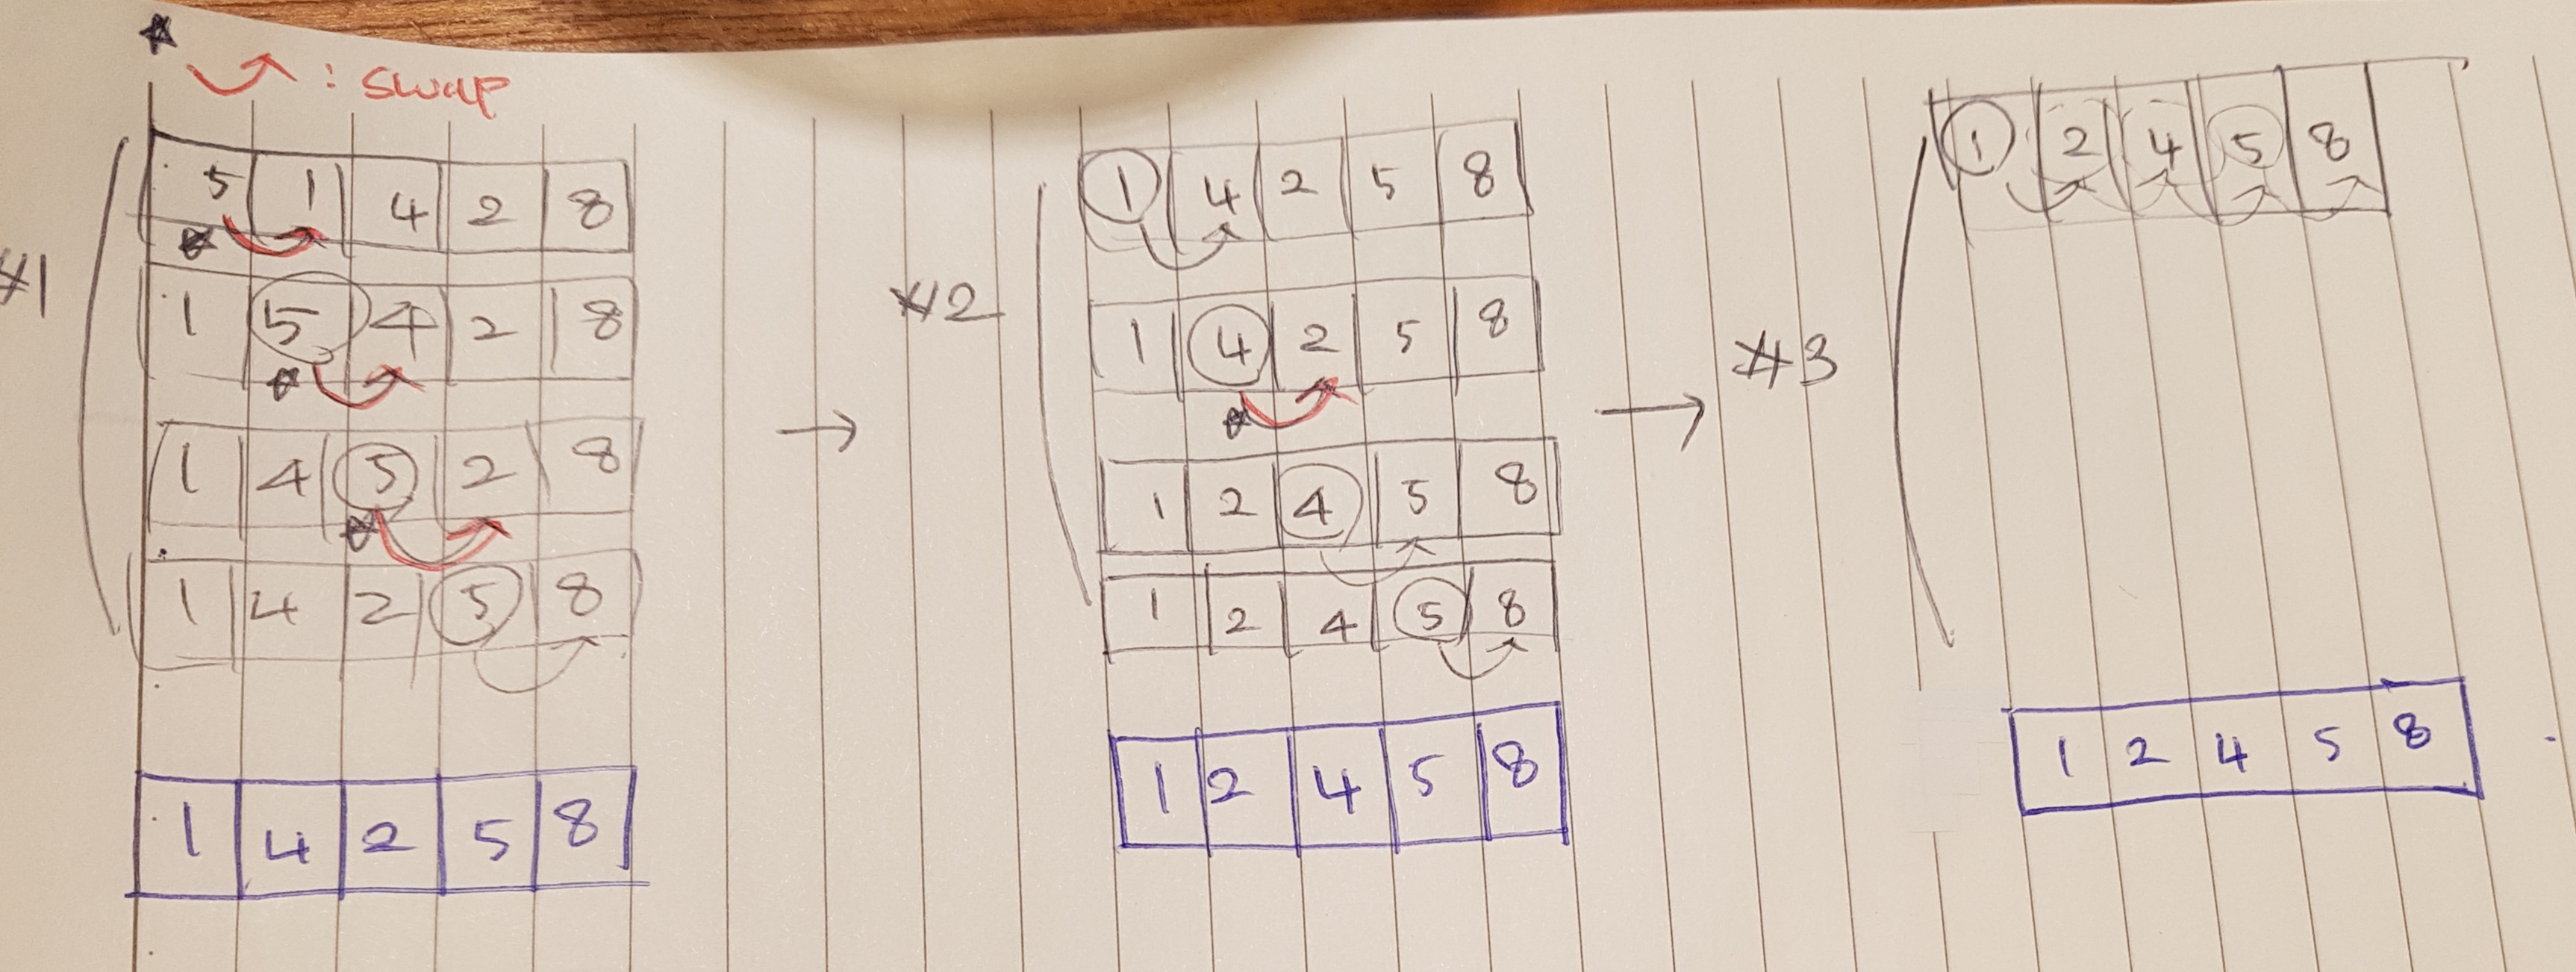 : swap
#1
5 1 4 2 8
1 5 4 2 8
1 4 5 2 8
1 4 2 5 8
1 4 2 5 8
#2
1 4 2 5 8
1 4 2 5 8
1 2 4 5 8
1 2 4 5 8
1 2 4 5 8
#3
1 2 4 5 8
1 2 4 5 8